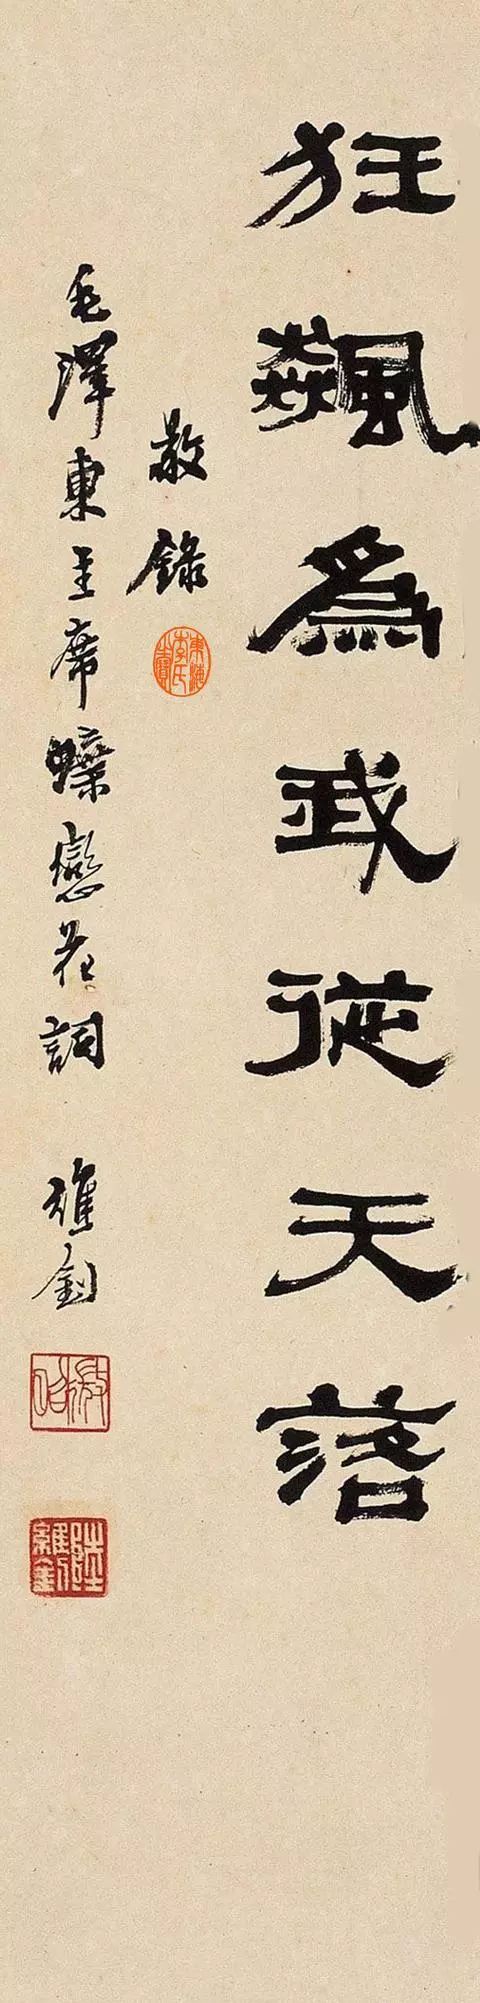 狂飆為我從天落
敬錄
毛澤東主席蝶戀花詞 維釗
微昭
陸維釗